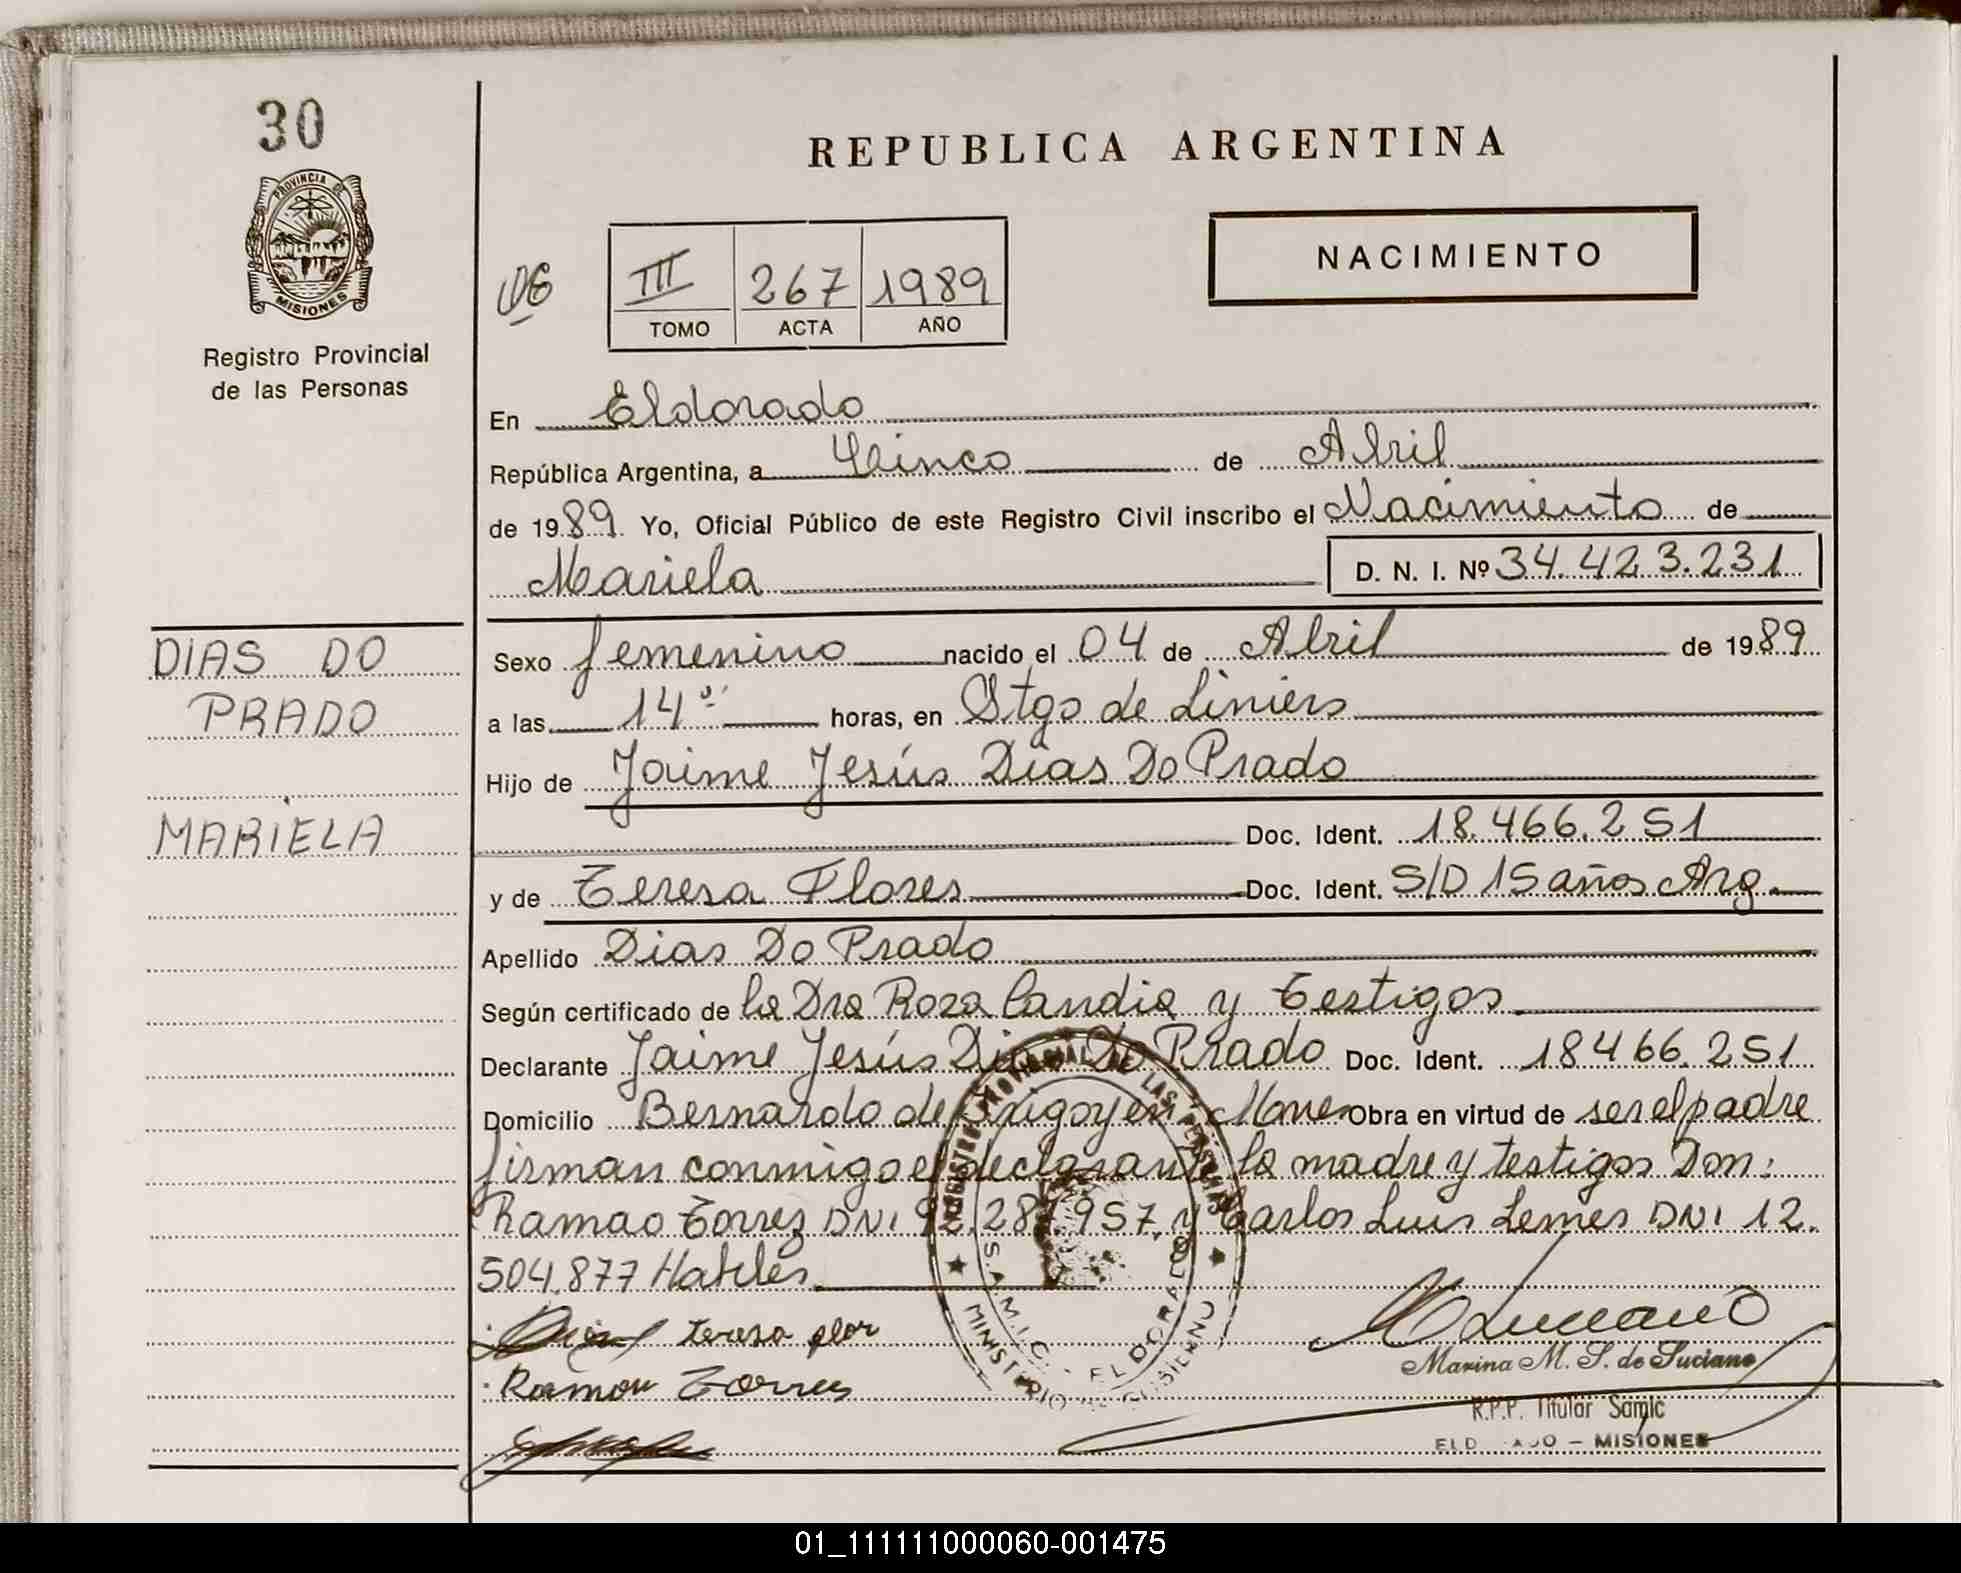 30
PROVINCIA DE
MISIONES
Registro Provincial
de las Personas
DIAS DO
PRADO
MARIELA
REPUBLICA ARGENTINA
NACIMIENTO
III 267 1989
TOMO ACTA AÑO
En Eldorado
República Argentina, a Cinco de Abril
de 1989. Yo, Oficial Público de este Registro Civil inscribo el Nacimiento de
Mariela D. N. I. Nº 34.423.231
Sexo femenino nacido el 04 de Abril de 1989
a las 14 horas, en Stgo de Liniers
Hijo de Jaime Jesús Dias Do Prado
Doc. Ident. 18.466.251
y de Teresa Flores Doc. Ident. S/D 15 años Arg.
Apellido Dias Do Prado
Según certificado de la Dra Roza Candia y Testigos
Declarante Jaime Jesús Dias Do Prado Doc. Ident. 18466.251
Domicilio Bernardo de Irigoyen Mnes Obra en virtud de ser el padre
firman conmigo el declarante la madre y testigos Don:
Ramao Torrez DNI 28 957 y Carlos Luis Lemes DNI 12.
504.877 Habiles
teresa flor
Ramon Torres
REGISTRO PROVINCIAL DE LAS PERSONAS
S.A.M.I.C. - ELDORADO
MINISTERIO DE GOBIERNO
Marina M. S. de Luciano
R.P.P. Titular Samic
ELDORADO - MISIONES
01_111111000060-001475